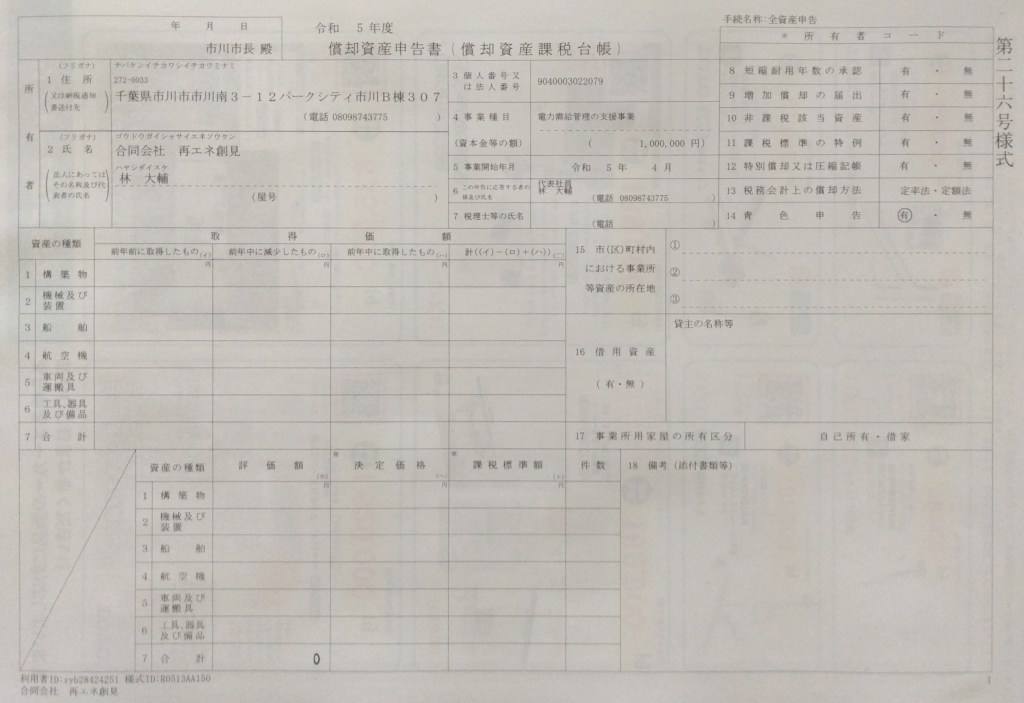 手続名称:全資産申告
年 月 日
令和 5年度
市川市長 殿
償却資産申告書(償却資産課税台帳)
* 所有者コード
第二十六号様式
所有者
(フリガナ)
チバケンイチカワシイチカワミナミ
1 住所
272-0033
(又は納税通知書送付先)
千葉県市川市市川南3-12パークシティ市川B棟307
(電話 08098743775 )
(フリガナ)
ゴウドウガイシャサイエネソウケン
2 氏名
合同会社 再エネ創見
(法人にあってはその名称及び代表者の氏名)
ハヤシダイスケ
林 大輔
(屋号 )
3 個人番号又は法人番号
9040003022079
4 事業種目
電力需給管理の支援事業
(資本金等の額)
( 1,000,000 円)
5 事業開始年月
令和 5年 4月
6 この申告に応答する者の係及び氏名
代表社員
林 大輔
(電話 08098743775 )
7 税理士等の氏名
(電話 )
8 短縮耐用年数の承認 有・無
9 増加償却の届出 有・無
10 非課税該当資産 有・無
11 課税標準の特例 有・無
12 特別償却又は圧縮記帳 有・無
13 税務会計上の償却方法 定率法・定額法
14 青色申告 有・無
資産の種類
取得価額
前年前に取得したもの(イ)
前年中に減少したもの(ロ)
前年中に取得したもの(ハ)
計((イ)-(ロ)+(ハ))(ニ)
円 円 円 円
1 構築物
2 機械及び装置
3 船舶
4 航空機
5 車両及び運搬具
6 工具、器具及び備品
7 合計
15 市(区)町村内における事業所等資産の所在地
①
②
③
16 借用資産
(有・無)
貸主の名称等
17 事業所用家屋の所有区分
自己所有・借家
資産の種類
評価額(ホ)
* 決定価格(ヘ)
* 課税標準額(ト)
件数
18 備考(添付書類等)
円 円 円
1 構築物
2 機械及び装置
3 船舶
4 航空機
5 車両及び運搬具
6 工具、器具及び備品
7 合計 0
利用者ID:zyb28424251 様式ID:R0513AA150
合同会社 再エネ創見
1